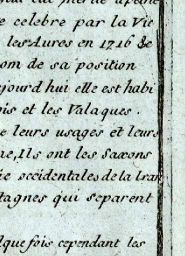 e celebre par la Vic
les Aures en 1716 &e
om de sa position
ujourd'hui elle est habi
ois et les Valaques.
e leurs usages et leurs
ne, Ils ont les Saxons
ie occidentales de la Tran
tagnes qui separent
lque fois cependant les